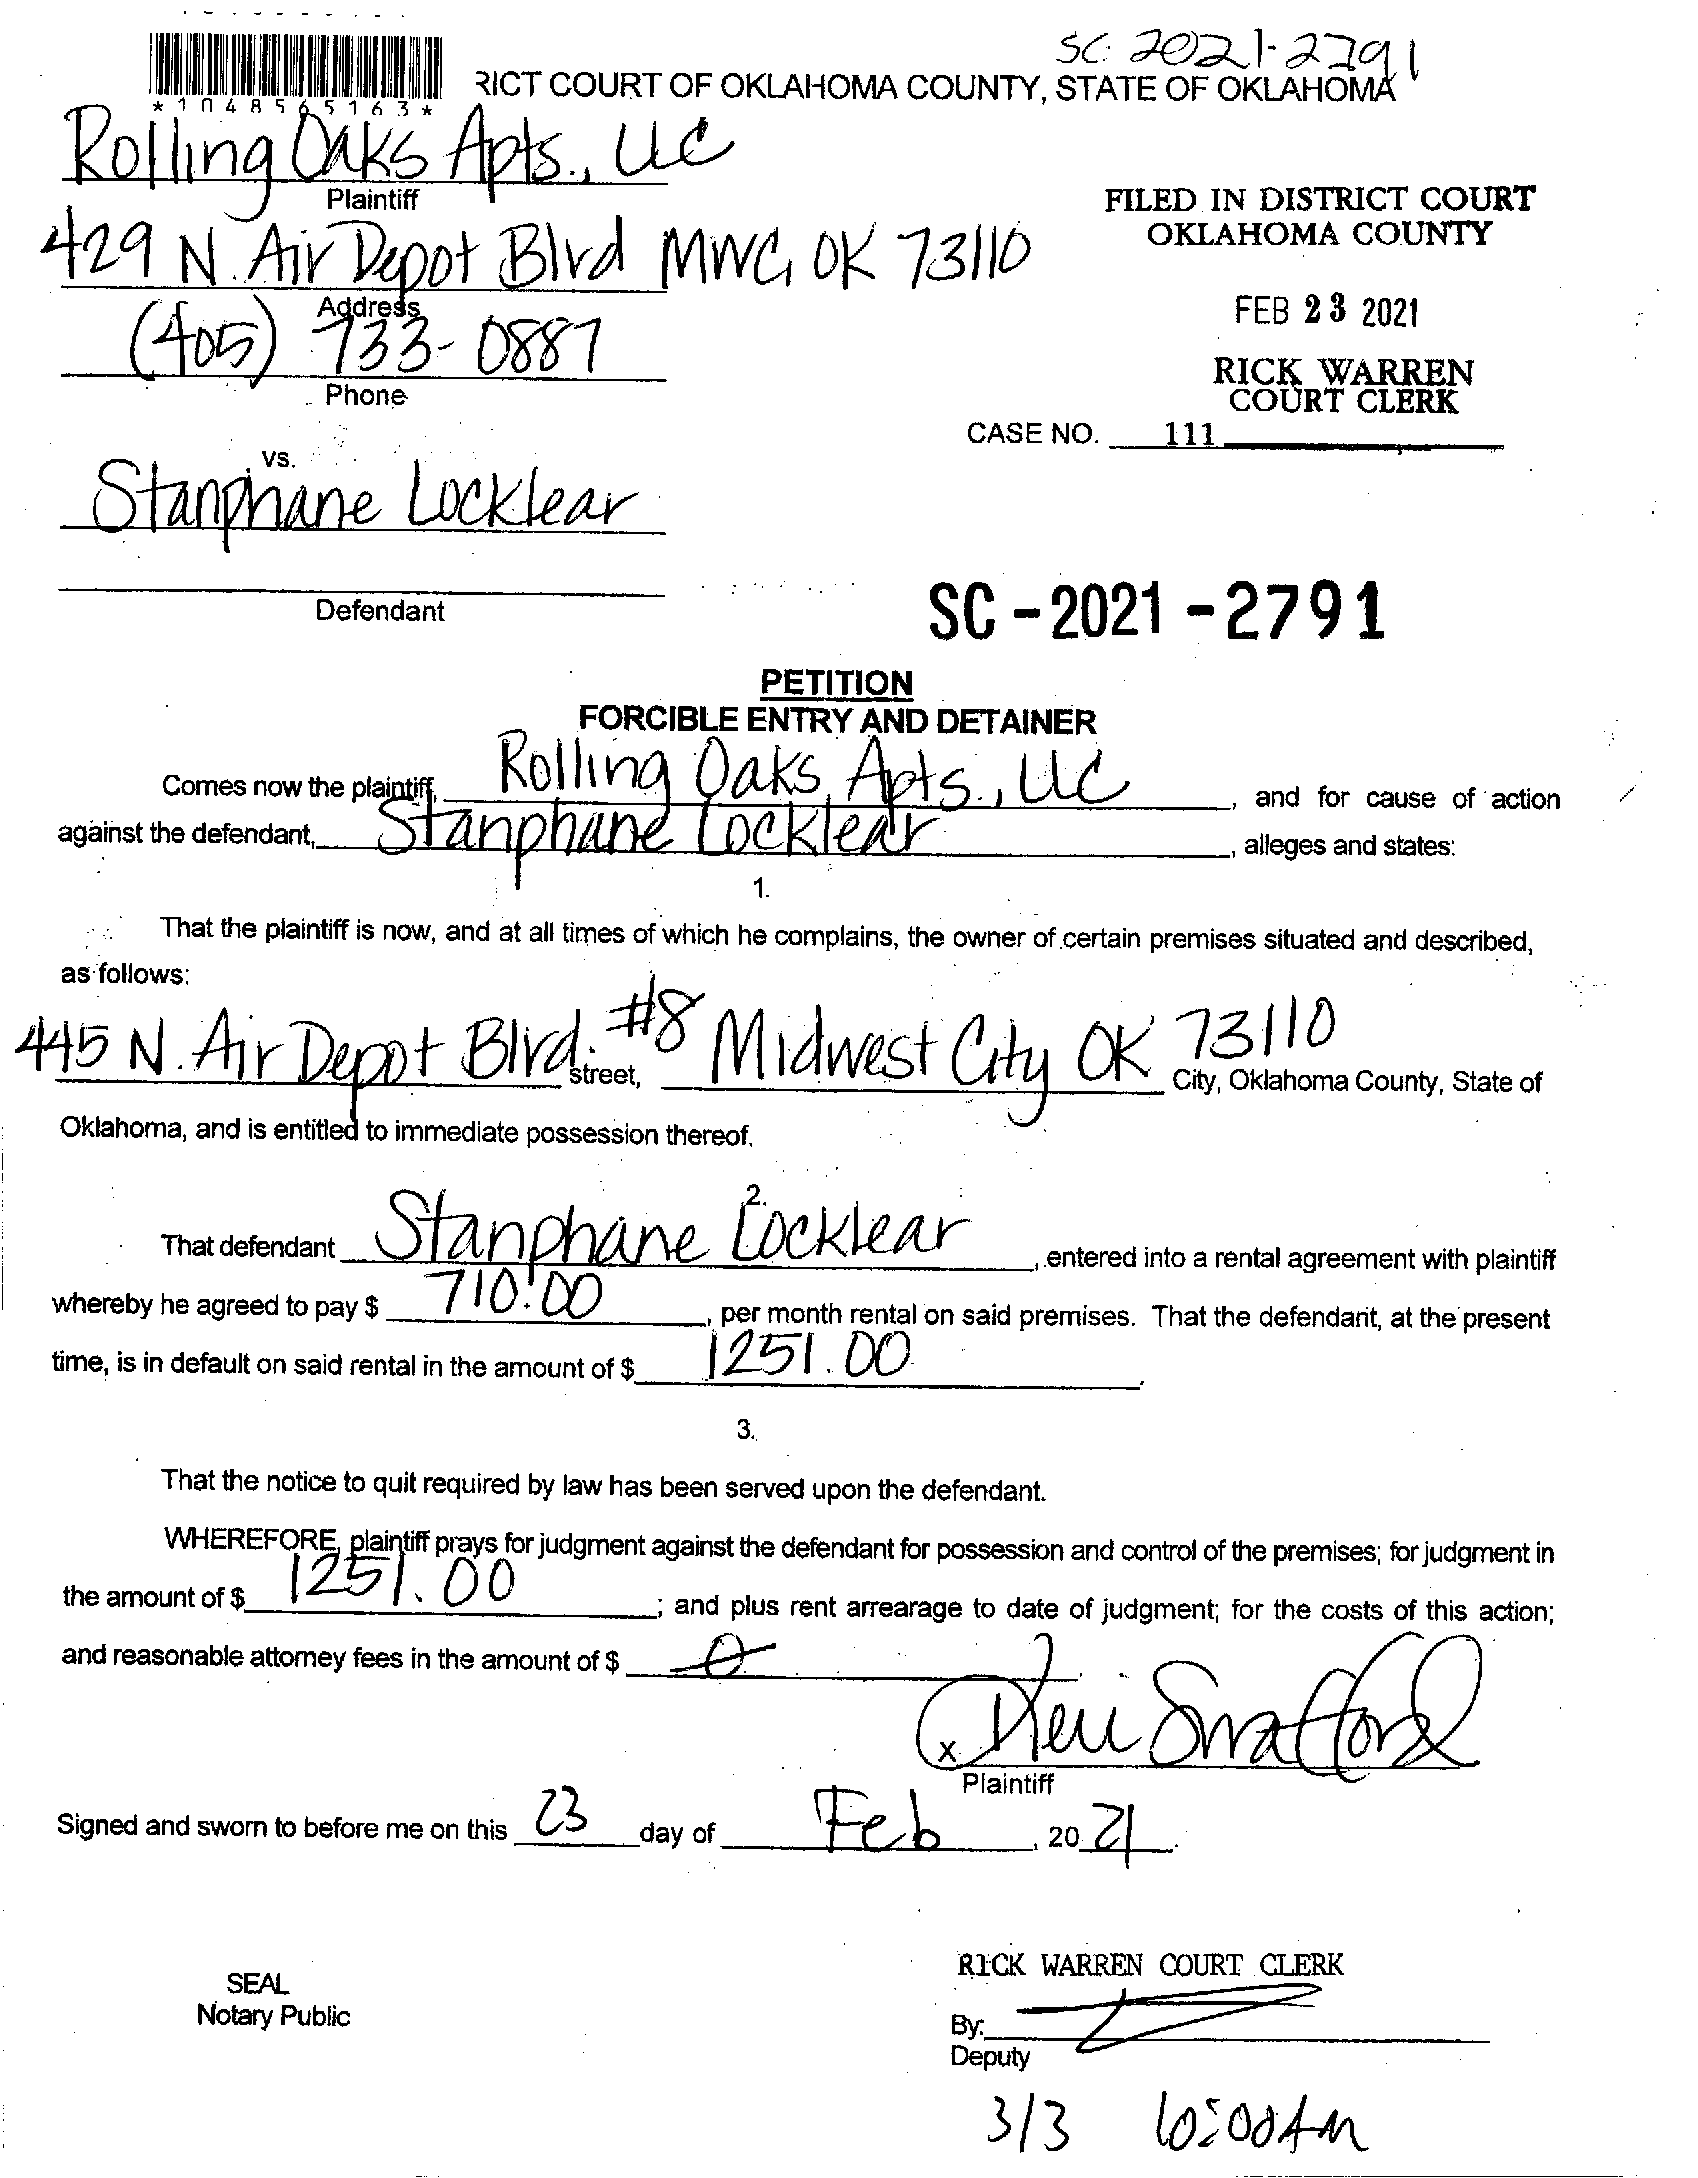 SC 2021-2791
*1048565163*
RICT COURT OF OKLAHOMA COUNTY, STATE OF OKLAHOMA
Rolling Oaks Apts., LLC
Plaintiff
FILED IN DISTRICT COURT
OKLAHOMA COUNTY
429 N. Air Depot Blvd MWC, OK 73110
Address
FEB 23 2021
(405) 733-0887
Phone
RICK WARREN
COURT CLERK
CASE NO. 111
vs.
Stanphane Locklear
Defendant
SC-2021-2791
PETITION
FORCIBLE ENTRY AND DETAINER
Comes now the plaintiff, Rolling Oaks Apts., LLC, and for cause of action
against the defendant, Stanphane Locklear, alleges and states:
1.
That the plaintiff is now, and at all times of which he complains, the owner of certain premises situated and described,
as follows:
445 N. Air Depot Blvd. #8 street, Midwest City OK 73110 City, Oklahoma County, State of
Oklahoma, and is entitled to immediate possession thereof.
2.
That defendant Stanphane Locklear, entered into a rental agreement with plaintiff
whereby he agreed to pay $ 710.00, per month rental on said premises. That the defendant, at the present
time, is in default on said rental in the amount of $ 1251.00.
3.
That the notice to quit required by law has been served upon the defendant.
WHEREFORE, plaintiff prays for judgment against the defendant for possession and control of the premises; for judgment in
the amount of $ 1251.00; and plus rent arrearage to date of judgment; for the costs of this action;
and reasonable attorney fees in the amount of $ 0
x
Plaintiff
Signed and sworn to before me on this 23 day of Feb, 20 21.
RICK WARREN COURT CLERK
SEAL
Notary Public
By:
Deputy
3/3 10:00AM